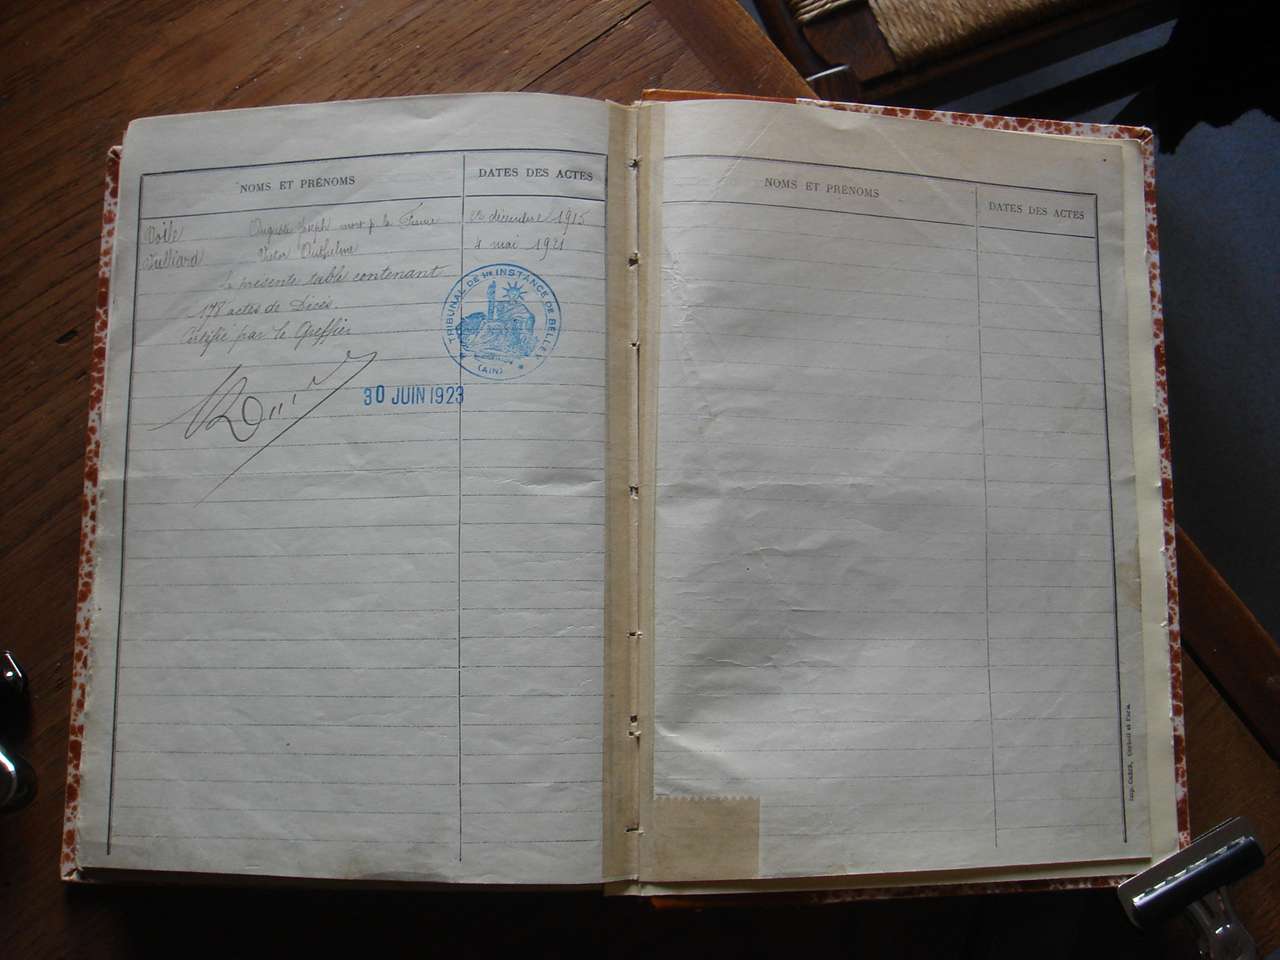 NOMS ET PRÉNOMS DATES DES ACTES
Voile Auguste Joseph mort p. la France décembre 1915
Vulliard Victor Anthelme 4 mai 1921
La présente table contenant
178 actes de Décès.
Certifié par le Greffier
TRIBUNAL DE 1re INSTANCE DE BELLEY
(AIN)
30 JUIN 1923
NOMS ET PRÉNOMS DATES DES ACTES